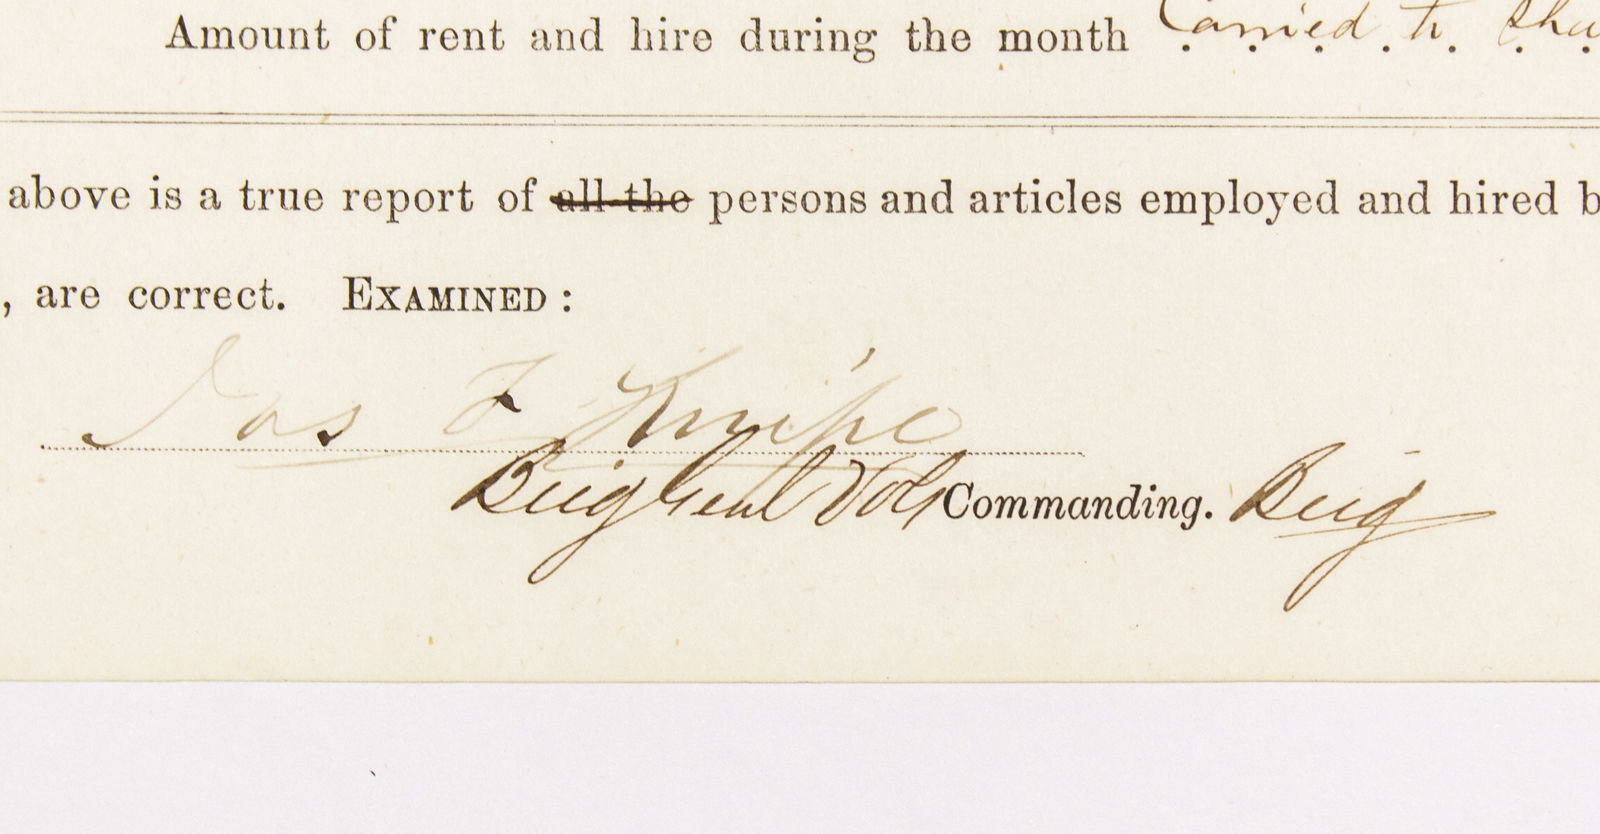 Amount of rent and hire during the month Carried to
above is a true report of all the persons and articles employed and hired b
, are correct. EXAMINED:
Jas F Knipe
Brig Genl Vols Commanding. Brig